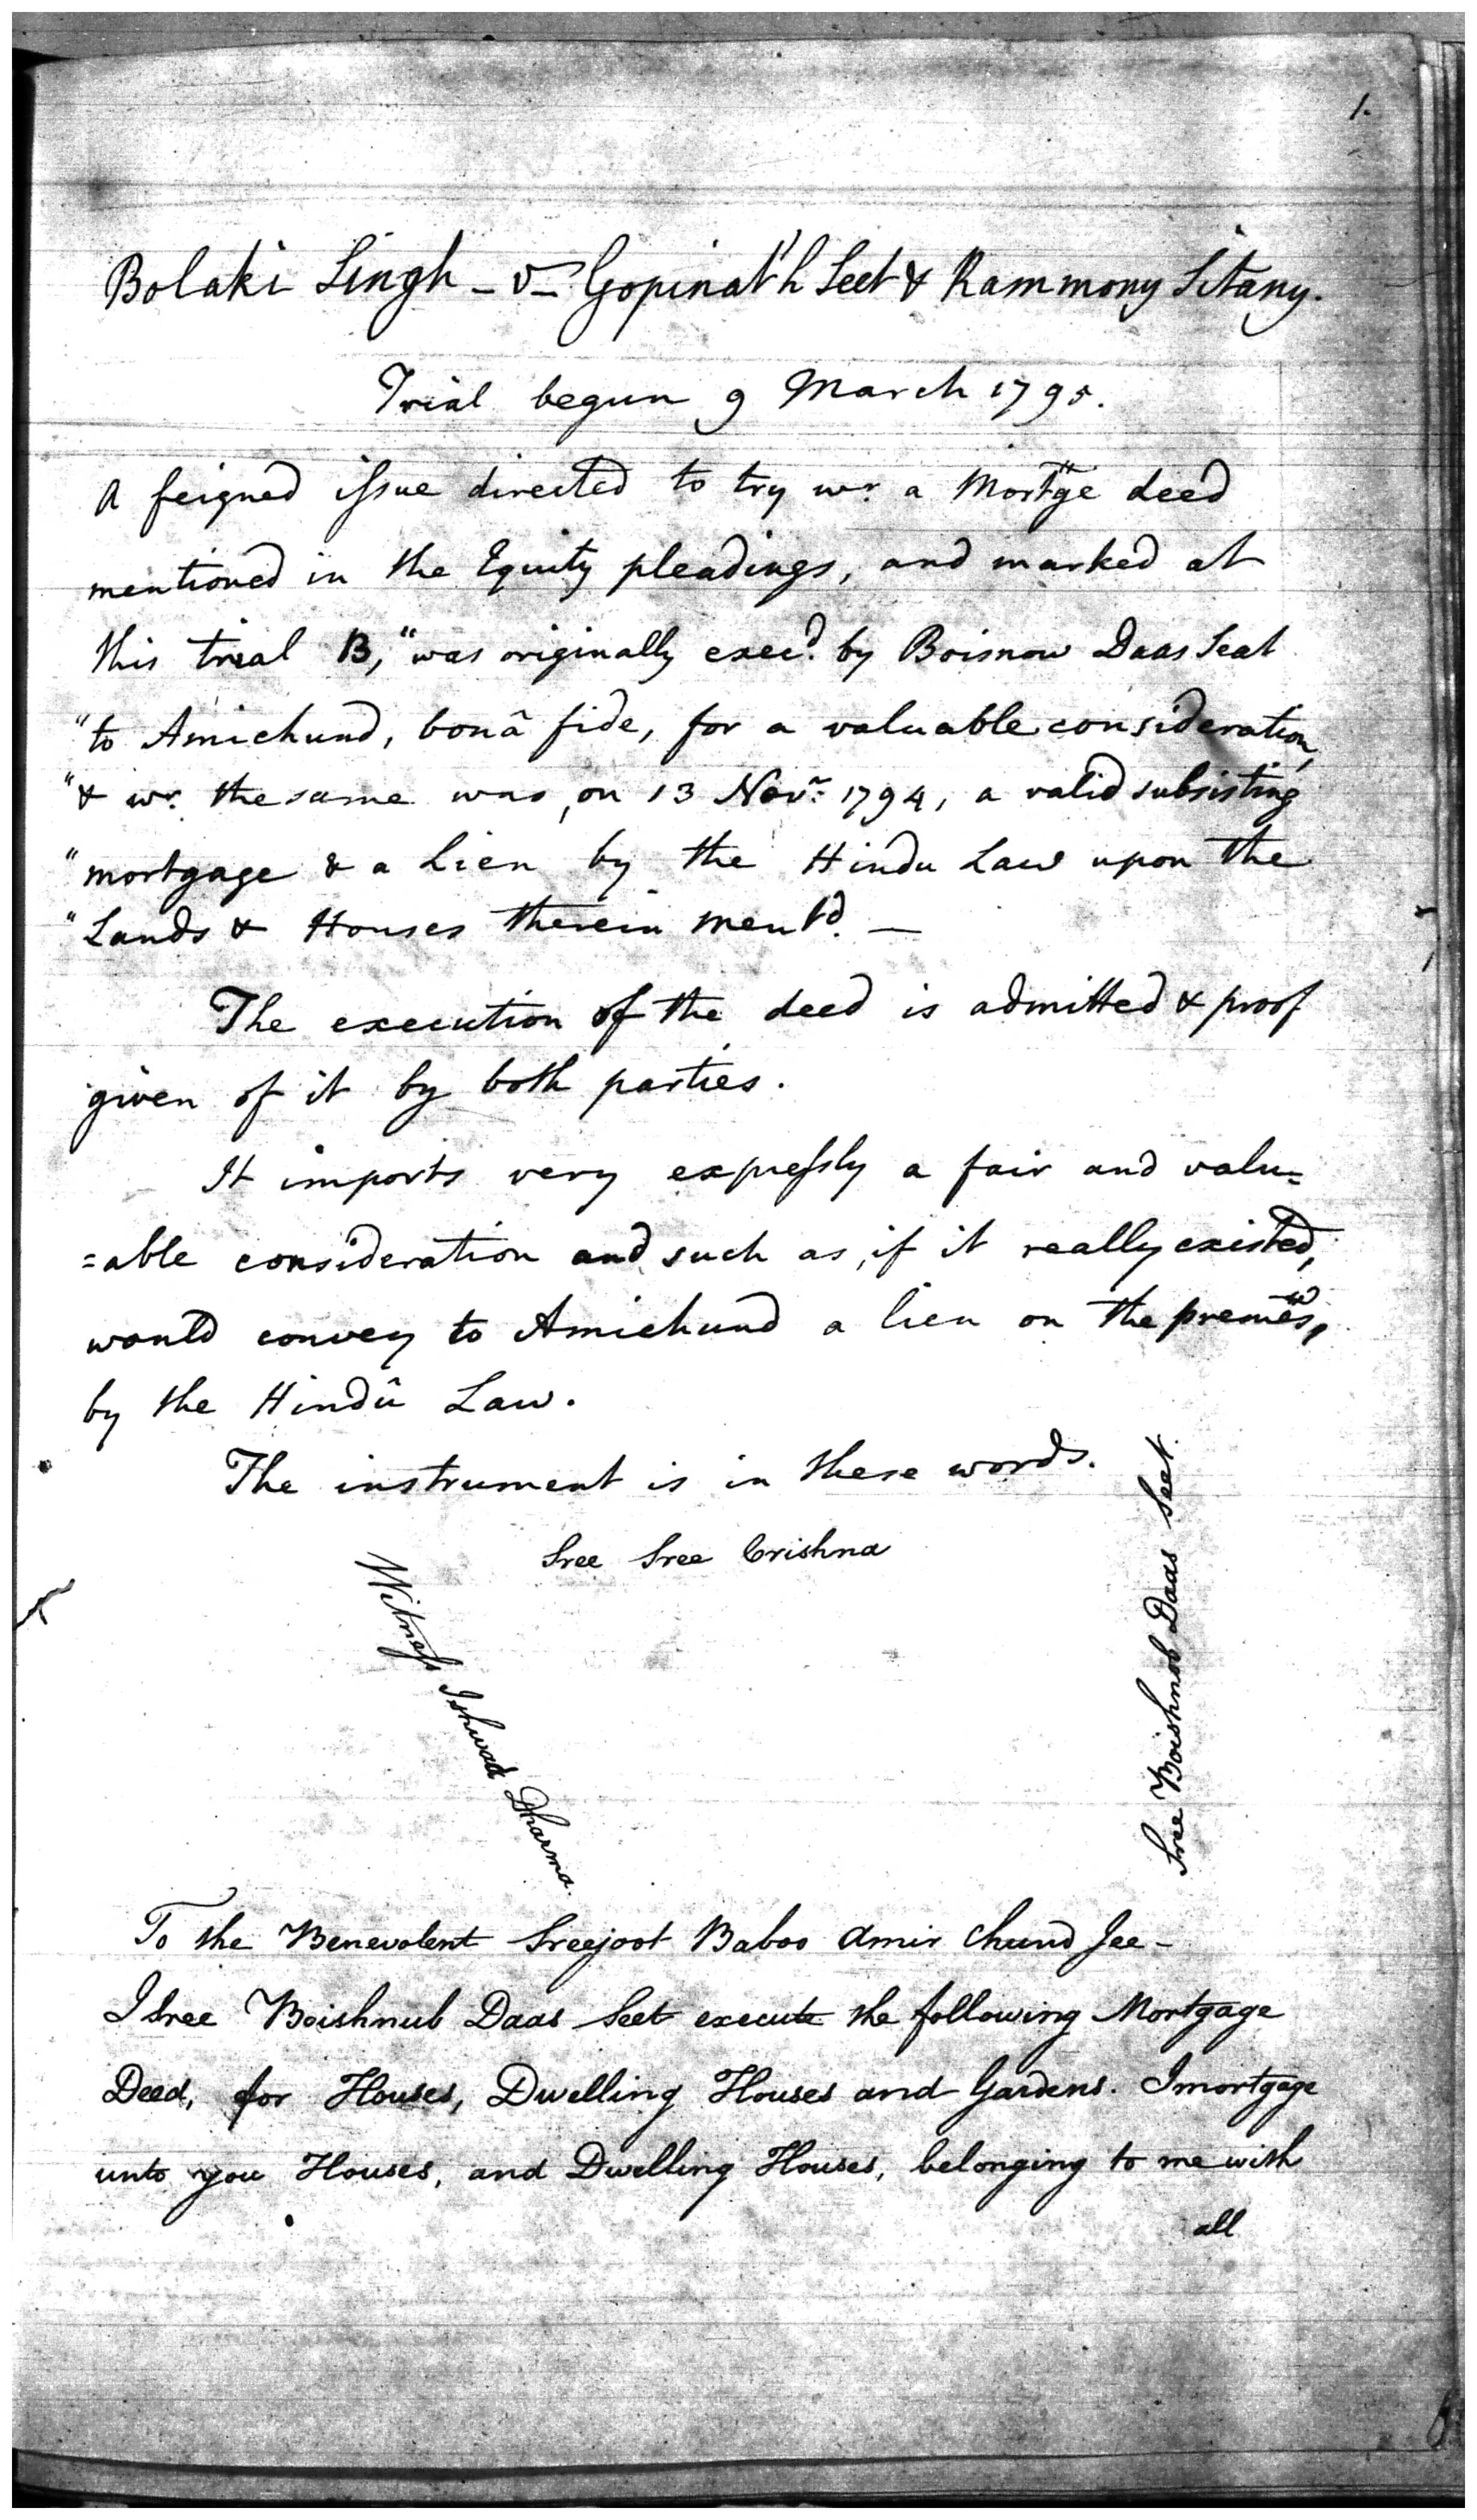 1.
Bolaki Singh - v - Gopinat'h Seet & Rammony Sitany.
Trial begun 9 March 1795.
A feigned issue directed to try wr. a Mortge deed
mentioned in the Equity pleadings, and marked at
this trial B, "was originally execd. by Boisnow Daas Seat
"to Amichund, bonâ fide, for a valuable consideration,
"& wr. the same was, on 13 Novr. 1794, a valid subsisting
"mortgage & a Lien by the Hindu Law upon the
"Lands & Houses therein mentd. —
The execution of the deed is admitted & proof
given of it by both parties.
It imports very expressly a fair and valu=
=able consideration and such as, if it really existed,
would convey to Amichund a lien on the premes,
by the Hindû Law.
The instrument is in these words.
Sree Sree Crishna
Witness Ishwad Dharma.
Sree Boishnob Daas Seet.
To the Benevolent Sreejoot Baboo Amir Chund Jee -
I Sree Boishnub Daas Seet execute the following Mortgage
Deed, for Houses, Dwelling Houses and Gardens. I mortgage
unto you Houses, and Dwelling Houses, belonging to me with
all